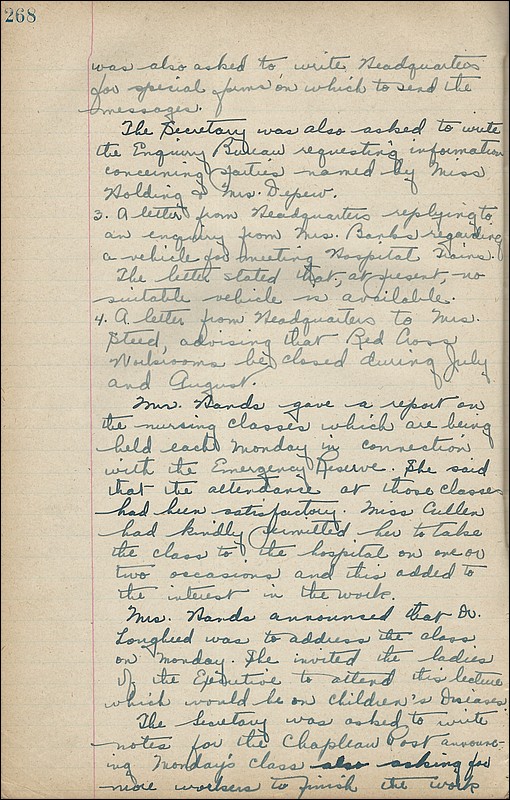 268
was also asked to write Headquarters
for special forms on which to send the
messages.
The Secretary was also asked to write
the Enquiry Bureau requesting information
concerning parties named by Miss
Holding & Mrs. Depew.
3. A letter from Headquarters replying to
an enquiry from Mrs. Banks regarding
a vehicle for meeting Hospital Trains.
The letter stated that, at present, no
suitable vehicle is available.
4. A letter from Headquarters to Mrs.
Steed, advising that Red Cross
Workrooms be closed during July
and August.
Mrs. Hands gave a report on
the nursing classes which are being
held each Monday in connection
with the Emergency Reserve. She said
that the attendance at those classes
had been satisfactory. Miss Cullen
had kindly permitted her to take
the class to the hospital on one or
two occasions and this added to
the interest in the work.
Mrs. Hands announced that Dr.
Longheed was to address the class
on Monday. She invited the ladies
of the Executive to attend this lecture
which would be on Children's Diseases.
The Secretary was asked to write
notes for the Chapleau Post announc-
ing Monday's class also asking for
more workers to finish the work